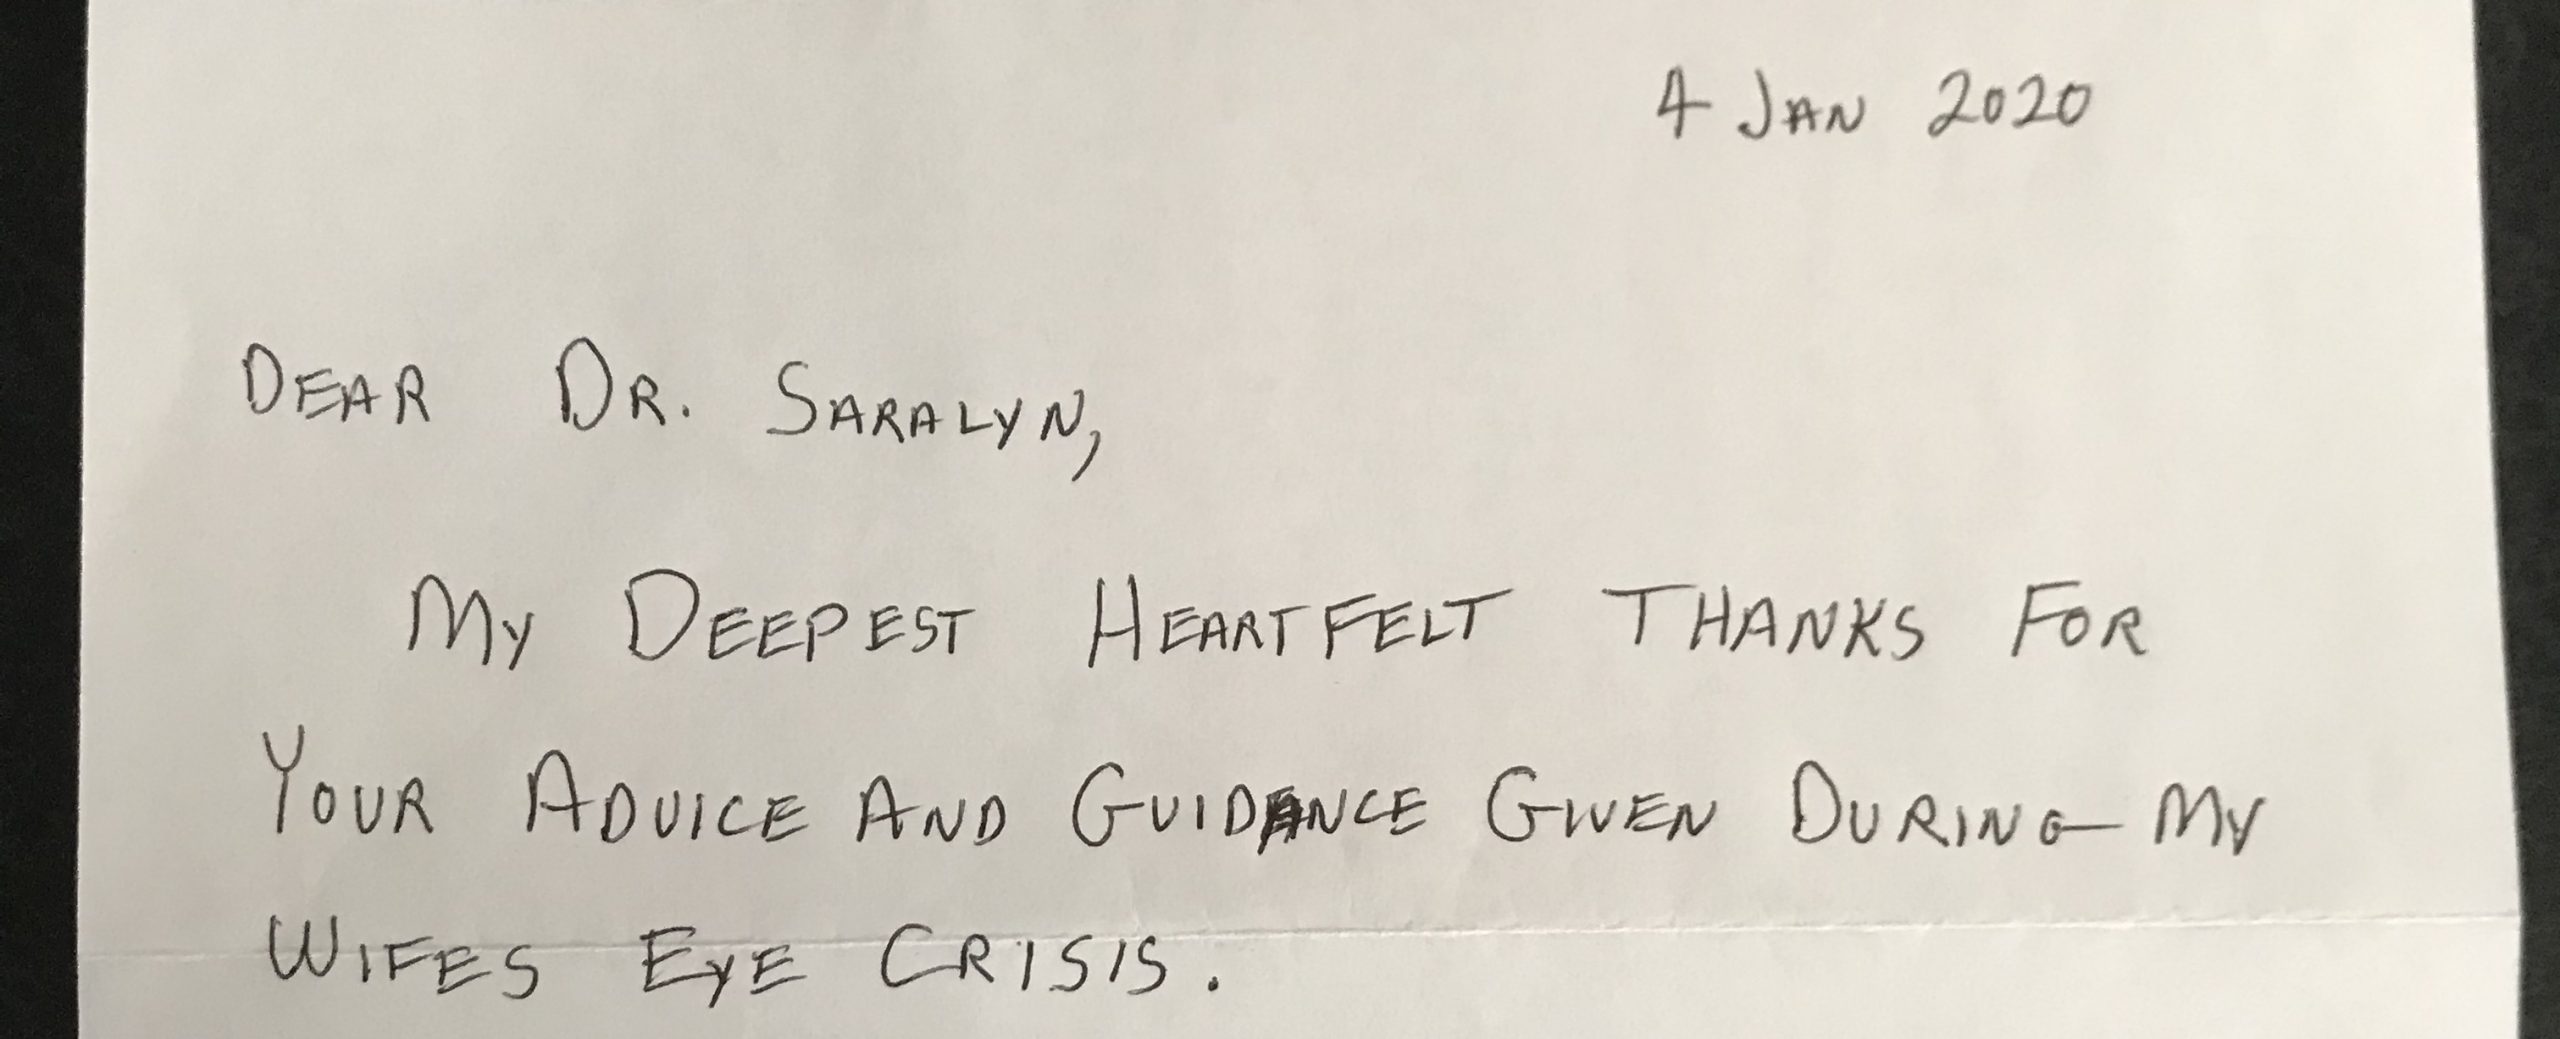 4 JAN 2020
DEAR DR. SARALYN,
MY DEEPEST HEARTFELT THANKS FOR
YOUR ADVICE AND GUIDANCE GIVEN DURING MY
WIFES EYE CRISIS.